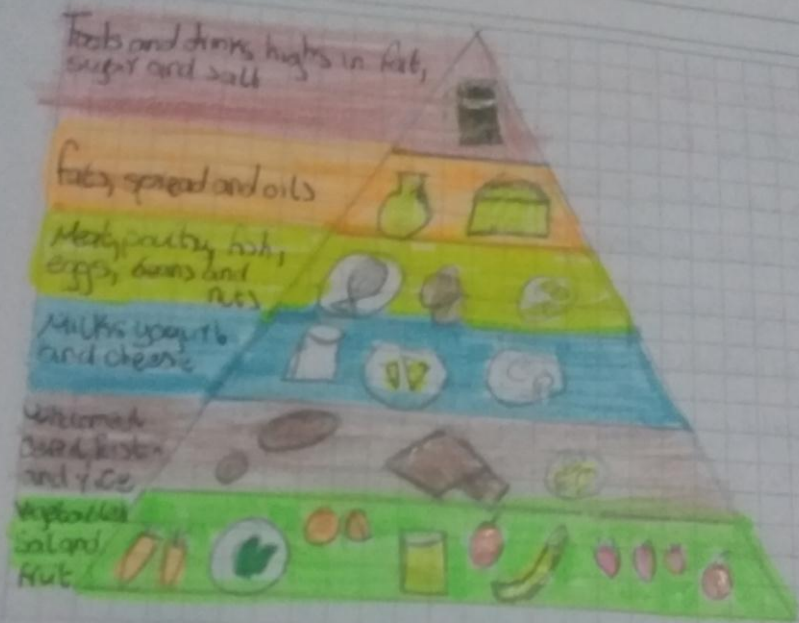 Foods and drinks highs in fat,
sugar and salt
Fats, spread and oils
Meat, poultry, fish,
eggs, beans and
nuts
Milks yogurt
and cheese
and rice
Vegetables
Salad
fruit